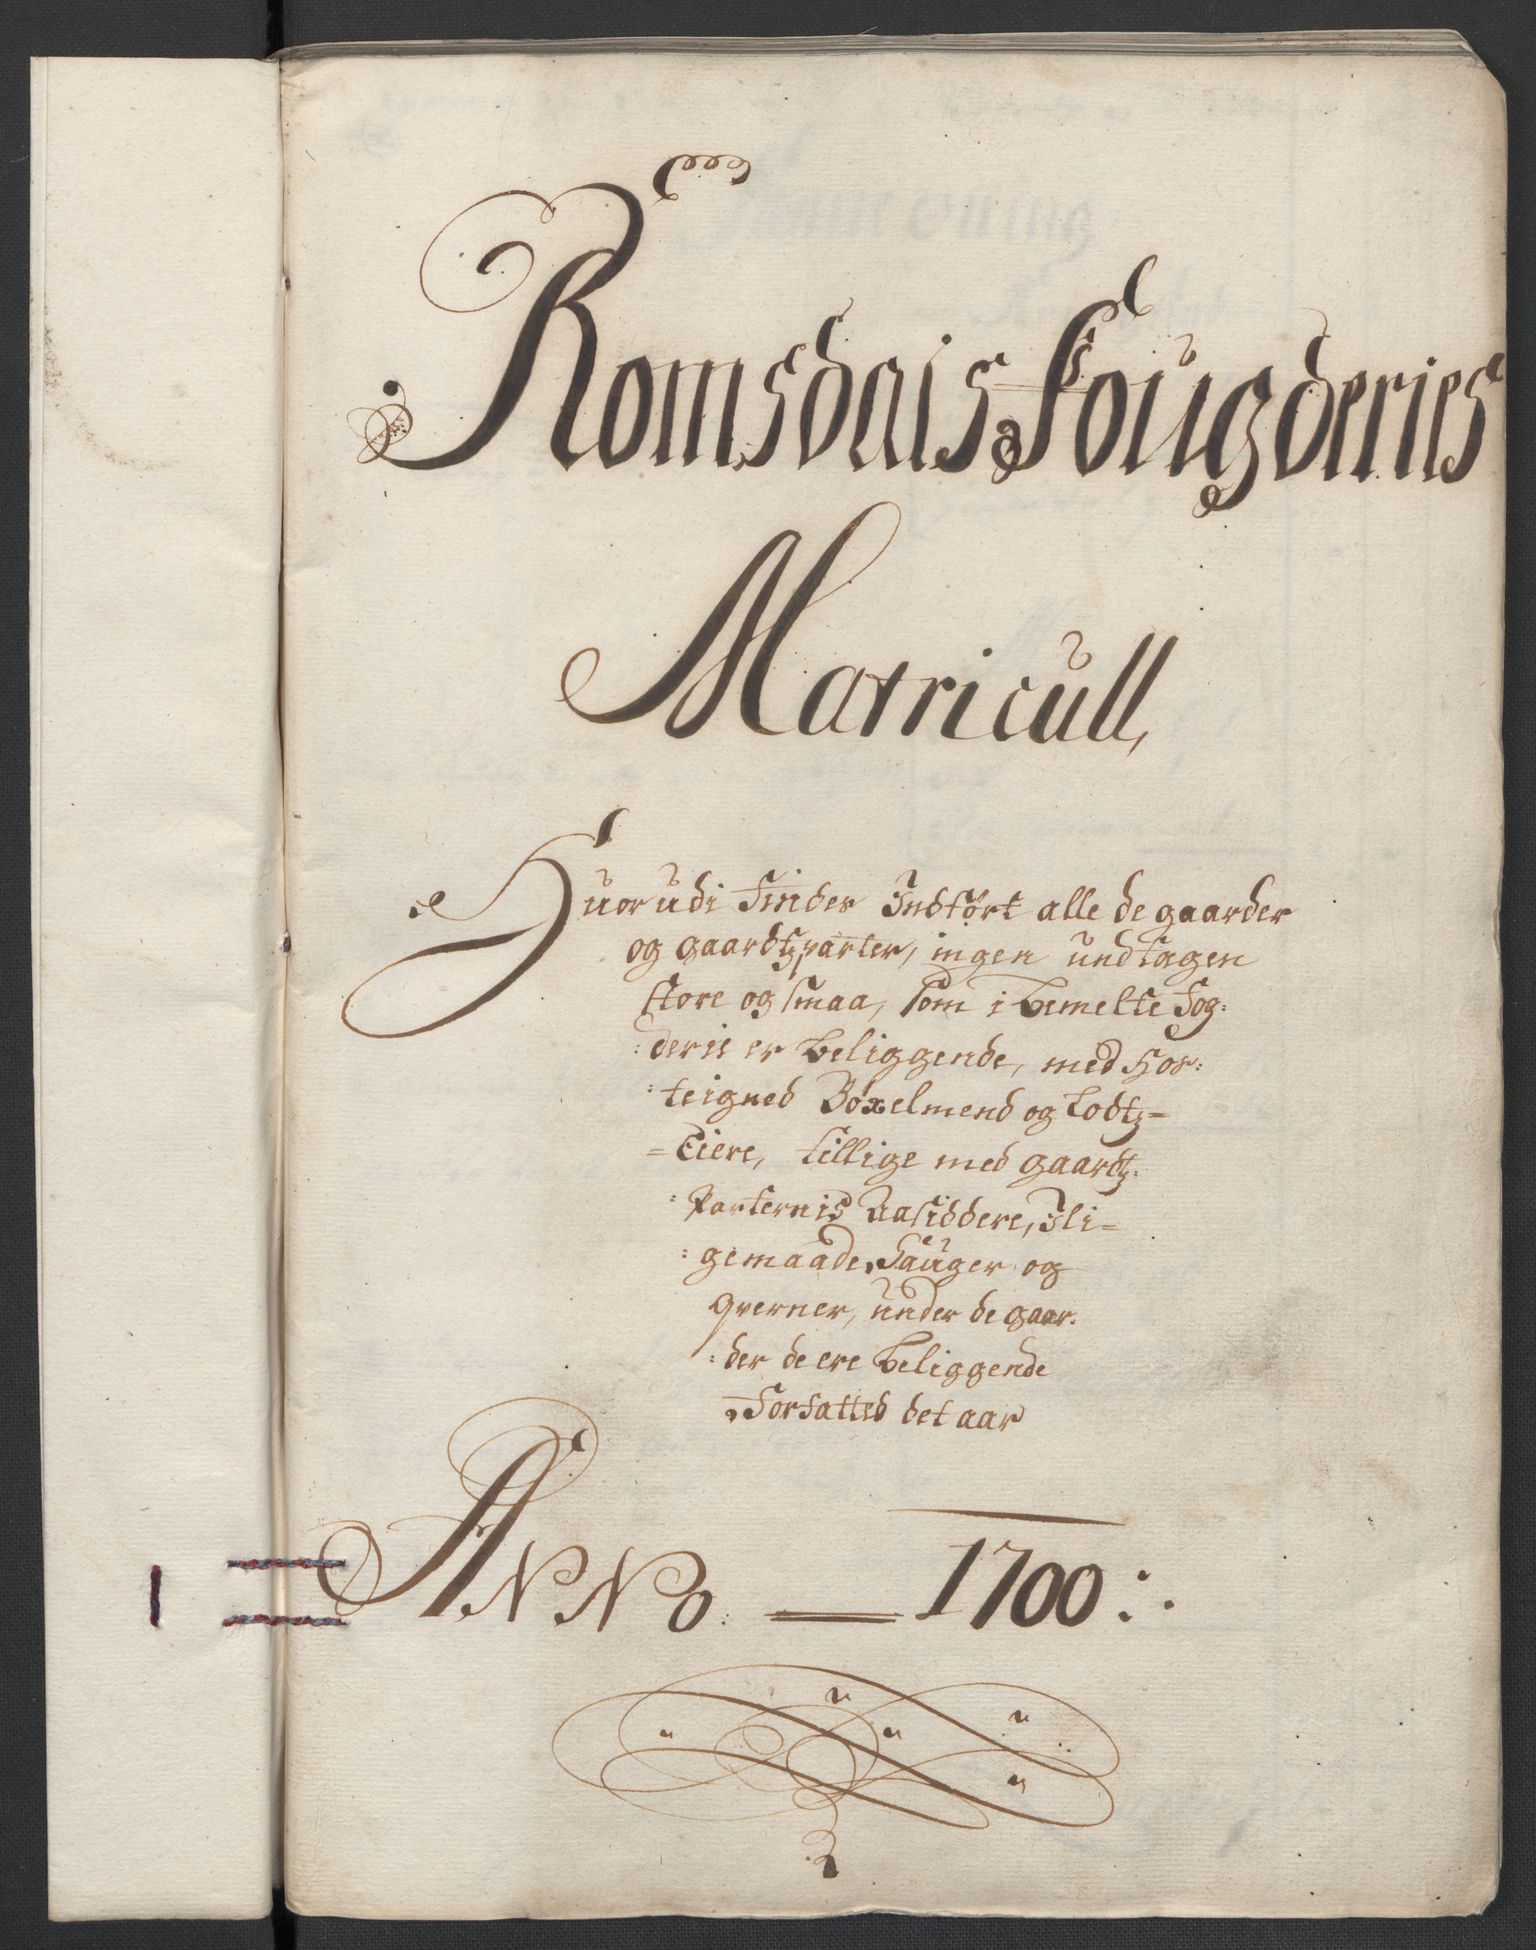 Romsdals Fougderies
Matricull,
Huorudi Findes Indført alle de gaarder
og gaardtzparter, ingen undtagen
store og smaa, som i bemelte Fog:
:derie er beliggende, med Hos:
:teigned Bøxelmend og Lodtz=
=Eiere, tillige med gaardtz:
:Parternis Aasiddere, Ili=
:gemaade, Sauger og
qverner, under de gaar:
:der de ere beliggende
Forfatted det aar
ANNO. 1700:.